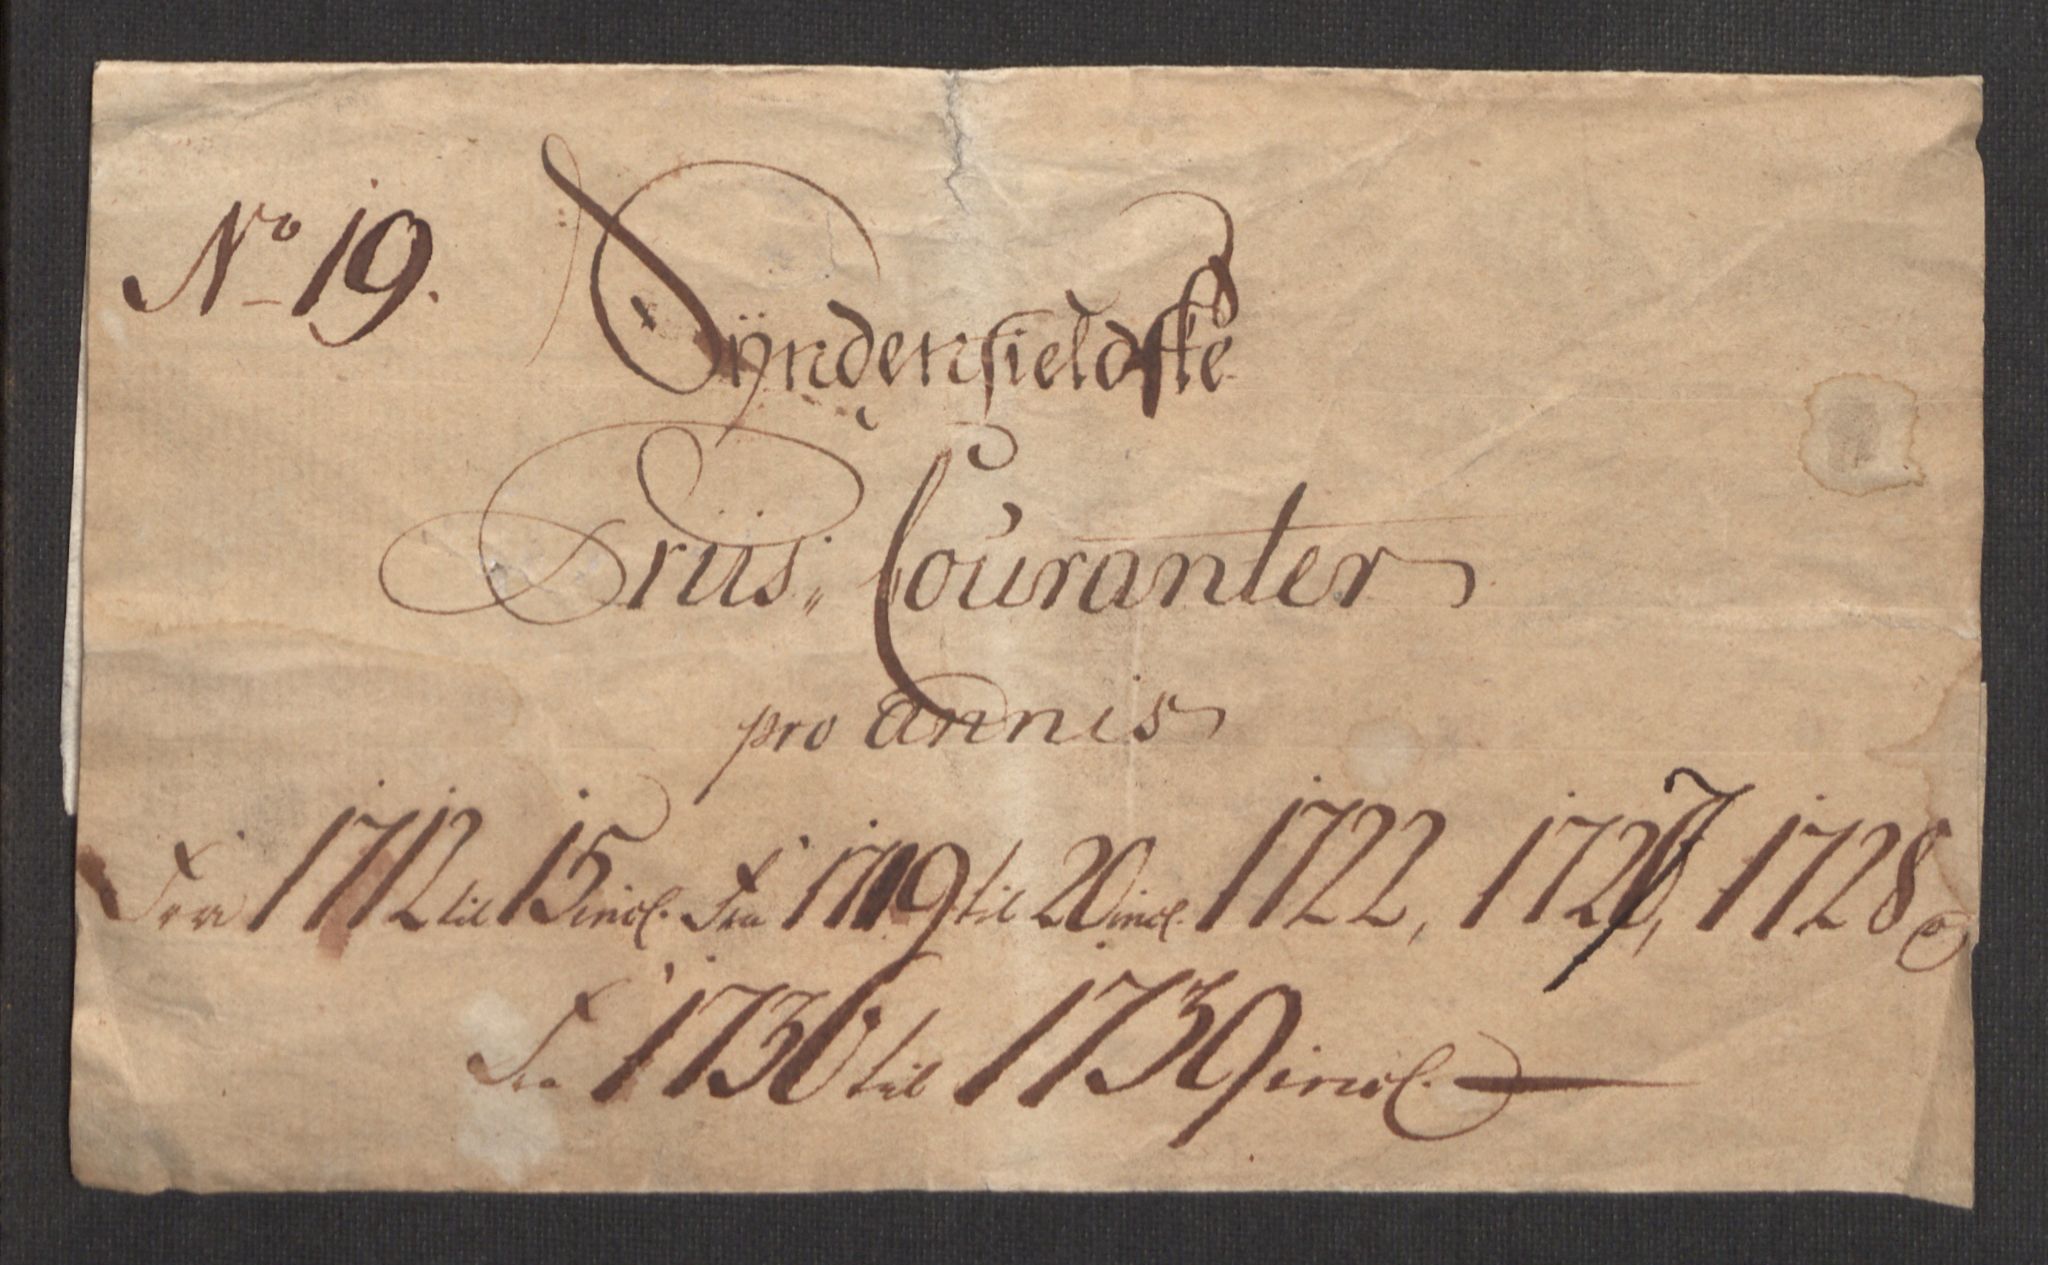 No 19.
Syndenfieldske
Priis, Couranter
pro Annis
Fra 1712 til 15 incl. Fra 1719 til 20 incl. 1722, 1727, 1728
Fra 1736 til 1739 incl.